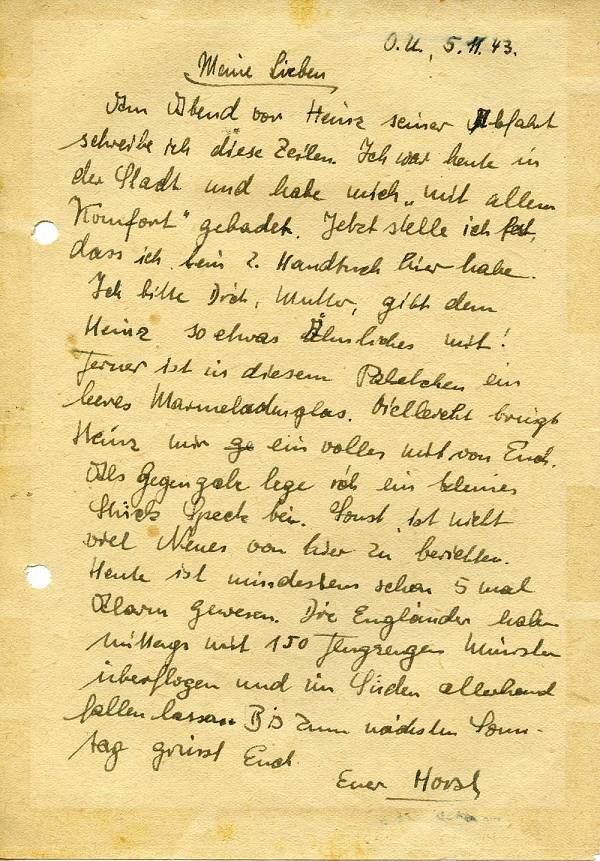 O.U., 5.11.43.
Meine Lieben
Am Abend vor Heinz seiner Abfahrt
schreibe ich diese Zeilen. Ich war heute in
der Stadt und habe mich „mit allem
Komfort“ gebadet. Jetzt stelle ich fest,
dass ich kein 2. Handtuch hier habe.
Ich bitte Dich, Mutter, gibt dem
Heinz so etwas Ähnliches mit!
Ferner ist in diesem Paketchen ein
leeres Marmeladenglas. Vielleicht bringt
Heinz mir ein volles mit von Euch.
Als Gegengabe lege ich ein kleines
Stück Speck bei. Sonst ist nicht
viel Neues von hier zu berichten.
Heute ist mindestens schon 5 mal
Alarm gewesen. Die Engländer haben
mittags mit 150 Flugzeugen Münster
überflogen und im Süden allerhand
fallen lassen. Bis zum nächsten Sonn-
tag grüsst Euch
Euer Horst